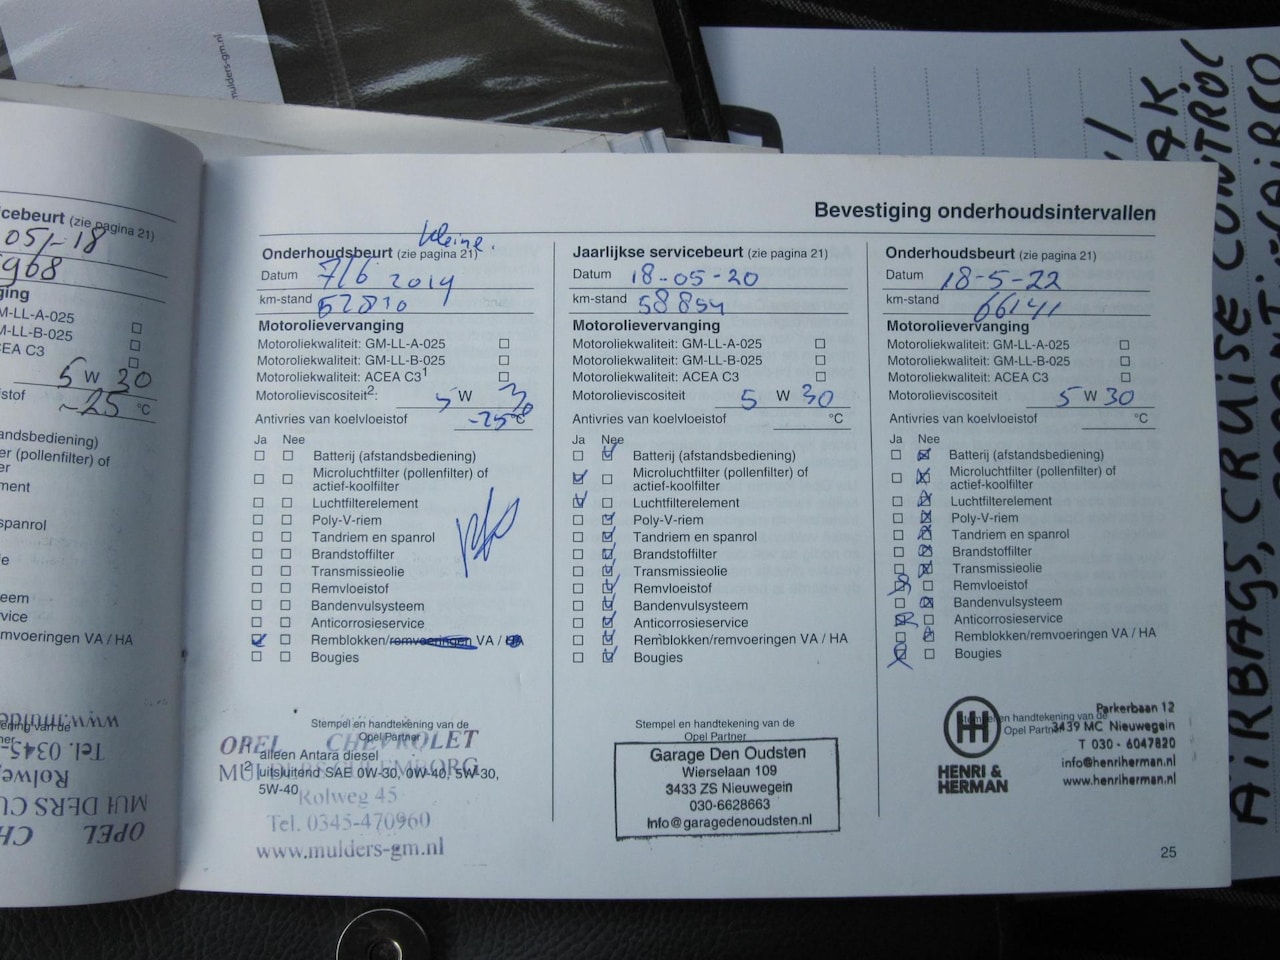 mulders-gm.nl
CRUISE CONTROL
AIRBAGS,
cebeurt (zie pagina 21)
05/-18
968
ging
M-LL-A-025
M-LL-B-025
CEA C3
5 W 30
stof -25 °C
andsbediening)
er (pollenfilter) of
er
ment
spanrol
e
eem
vice
mvoeringen VA / HA
ening van de
ner
www.mulder
Tel. 0345-
Rolwe
MULDERS CU
OPEL CH
Bevestiging onderhoudsintervallen
kleine.
Onderhoudsbeurt (zie pagina 21)
Datum 7/6 2019
km-stand 52830
Motorolievervanging
Motoroliekwaliteit: GM-LL-A-025
Motoroliekwaliteit: GM-LL-B-025
Motoroliekwaliteit: ACEA C3¹
Motorolieviscositeit²: 5 W 30
Antivries van koelvloeistof -25 °C
Ja Nee
Batterij (afstandsbediening)
Microluchtfilter (pollenfilter) of
actief-koolfilter
Luchtfilterelement
Poly-V-riem
Tandriem en spanrol
Brandstoffilter
Transmissieolie
Remvloeistof
Bandenvulsysteem
Anticorrosieservice
Remblokken/remvoeringen VA / HA
Bougies
Stempel en handtekening van de
Opel Partner
OPEL CHEVROLET
alleen Antara diesel
MULDERS CULEMBORG
² uitsluitend SAE 0W-30, 0W-40, 5W-30,
5W-40
Rolweg 45
Tel. 0345-470960
www.mulders-gm.nl
Jaarlijkse servicebeurt (zie pagina 21)
Datum 18-05-20
km-stand 58854
Motorolievervanging
Motoroliekwaliteit: GM-LL-A-025
Motoroliekwaliteit: GM-LL-B-025
Motoroliekwaliteit: ACEA C3
Motorolieviscositeit 5 W 30
Antivries van koelvloeistof °C
Ja Nee
Batterij (afstandsbediening)
Microluchtfilter (pollenfilter) of
actief-koolfilter
Luchtfilterelement
Poly-V-riem
Tandriem en spanrol
Brandstoffilter
Transmissieolie
Remvloeistof
Bandenvulsysteem
Anticorrosieservice
Remblokken/remvoeringen VA / HA
Bougies
Stempel en handtekening van de
Opel Partner
Garage Den Oudsten
Wierselaan 109
3433 ZS Nieuwegein
030-6628663
Info@garagedenoudsten.nl
Onderhoudsbeurt (zie pagina 21)
Datum 18-5-22
km-stand 66141
Motorolievervanging
Motoroliekwaliteit: GM-LL-A-025
Motoroliekwaliteit: GM-LL-B-025
Motoroliekwaliteit: ACEA C3
Motorolieviscositeit 5 W 30
Antivries van koelvloeistof °C
Ja Nee
Batterij (afstandsbediening)
Microluchtfilter (pollenfilter) of
actief-koolfilter
Luchtfilterelement
Poly-V-riem
Tandriem en spanrol
Brandstoffilter
Transmissieolie
Remvloeistof
Bandenvulsysteem
Anticorrosieservice
Remblokken/remvoeringen VA / HA
Bougies
Stempel en handtekening van de
Opel Partner
HENRI &
HERMAN
Parkerbaan 12
3439 MC Nieuwegein
T 030 - 6047820
info@henriherman.nl
www.henriherman.nl
25